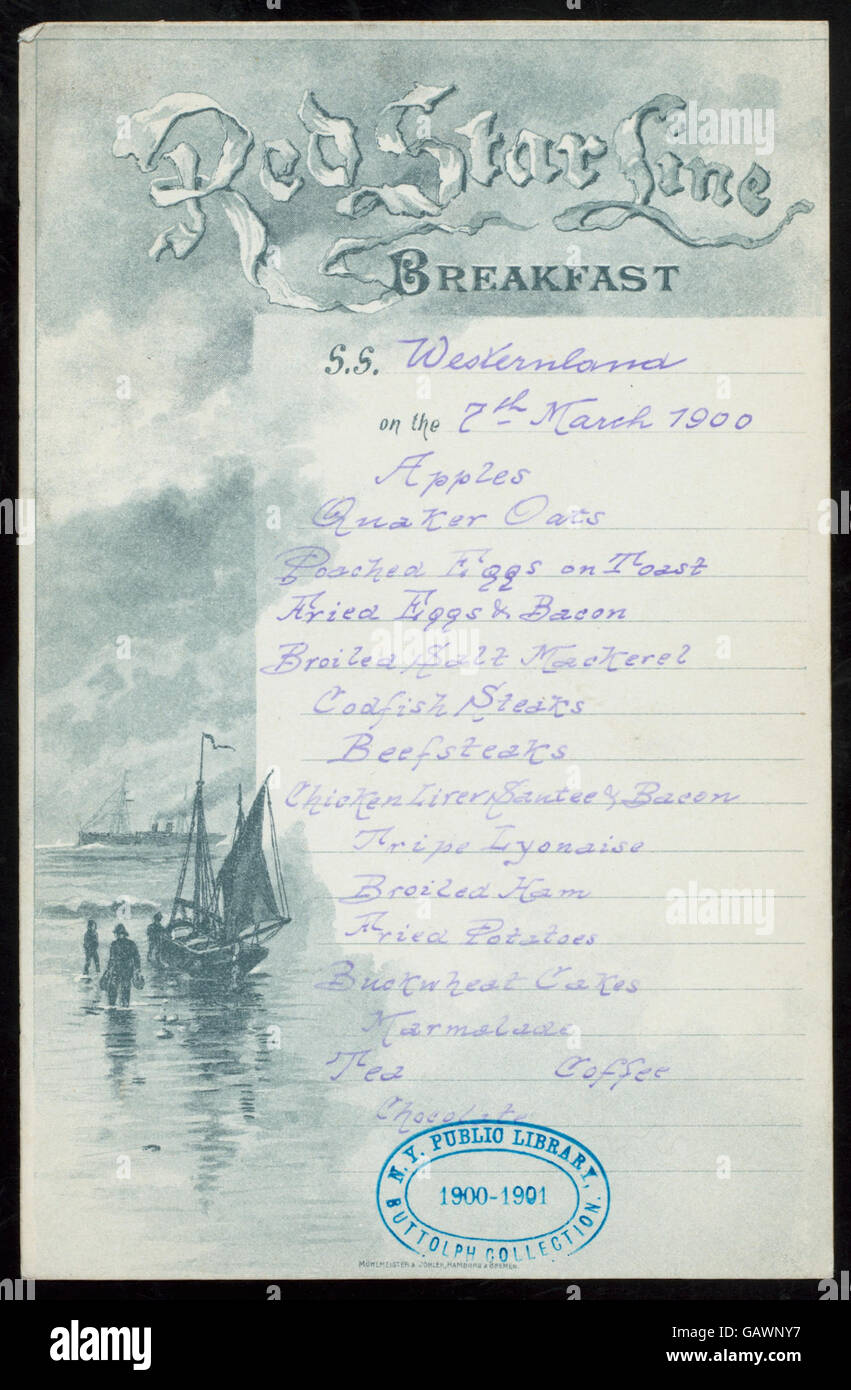 Red Star Line
BREAKFAST
S.S. Westernland
on the 7th March 1900
Apples
Quaker Oats
Poached Eggs on Toast
Fried Eggs & Bacon
Broiled Salt Mackerel
Codfish Steaks
Beefsteaks
Chicken Liver Sautee & Bacon
Tripe Lyonaise
Broiled Ham
Fried Potatoes
Buckwheat Cakes
Marmalade
Tea Coffee
Chocolate
N.Y. PUBLIC LIBRARY,
1900-1901
BUTTOLPH COLLECTION.
MÜHLMEISTER & JOHLER, HAMBURG & BREMEN.
alamy
Image ID: GAWNY7
www.alamy.com